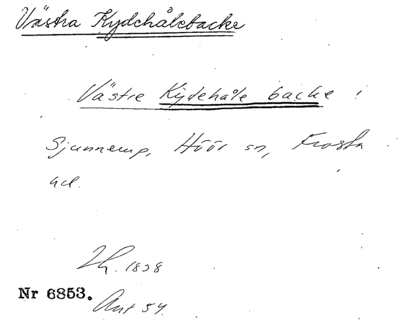 Västra Kydehålebacke
Västre Kydehåle backe i
Sjunnerup, Höör sn, Frosta
hd.
Lh. 1828
Nr 6853.
Ant 54.